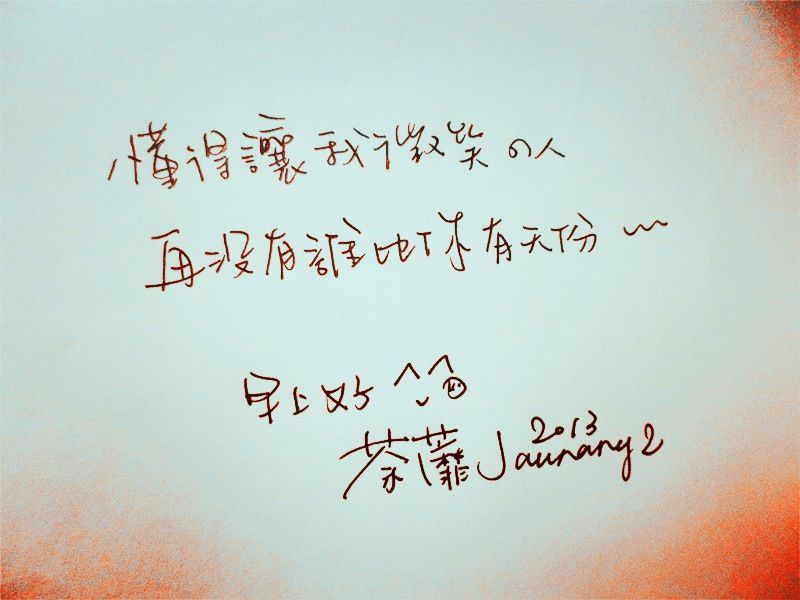 懂得讓我微笑的人
再沒有誰比你有天份~
早上好 ^_^
荼蘼 January 2
2013